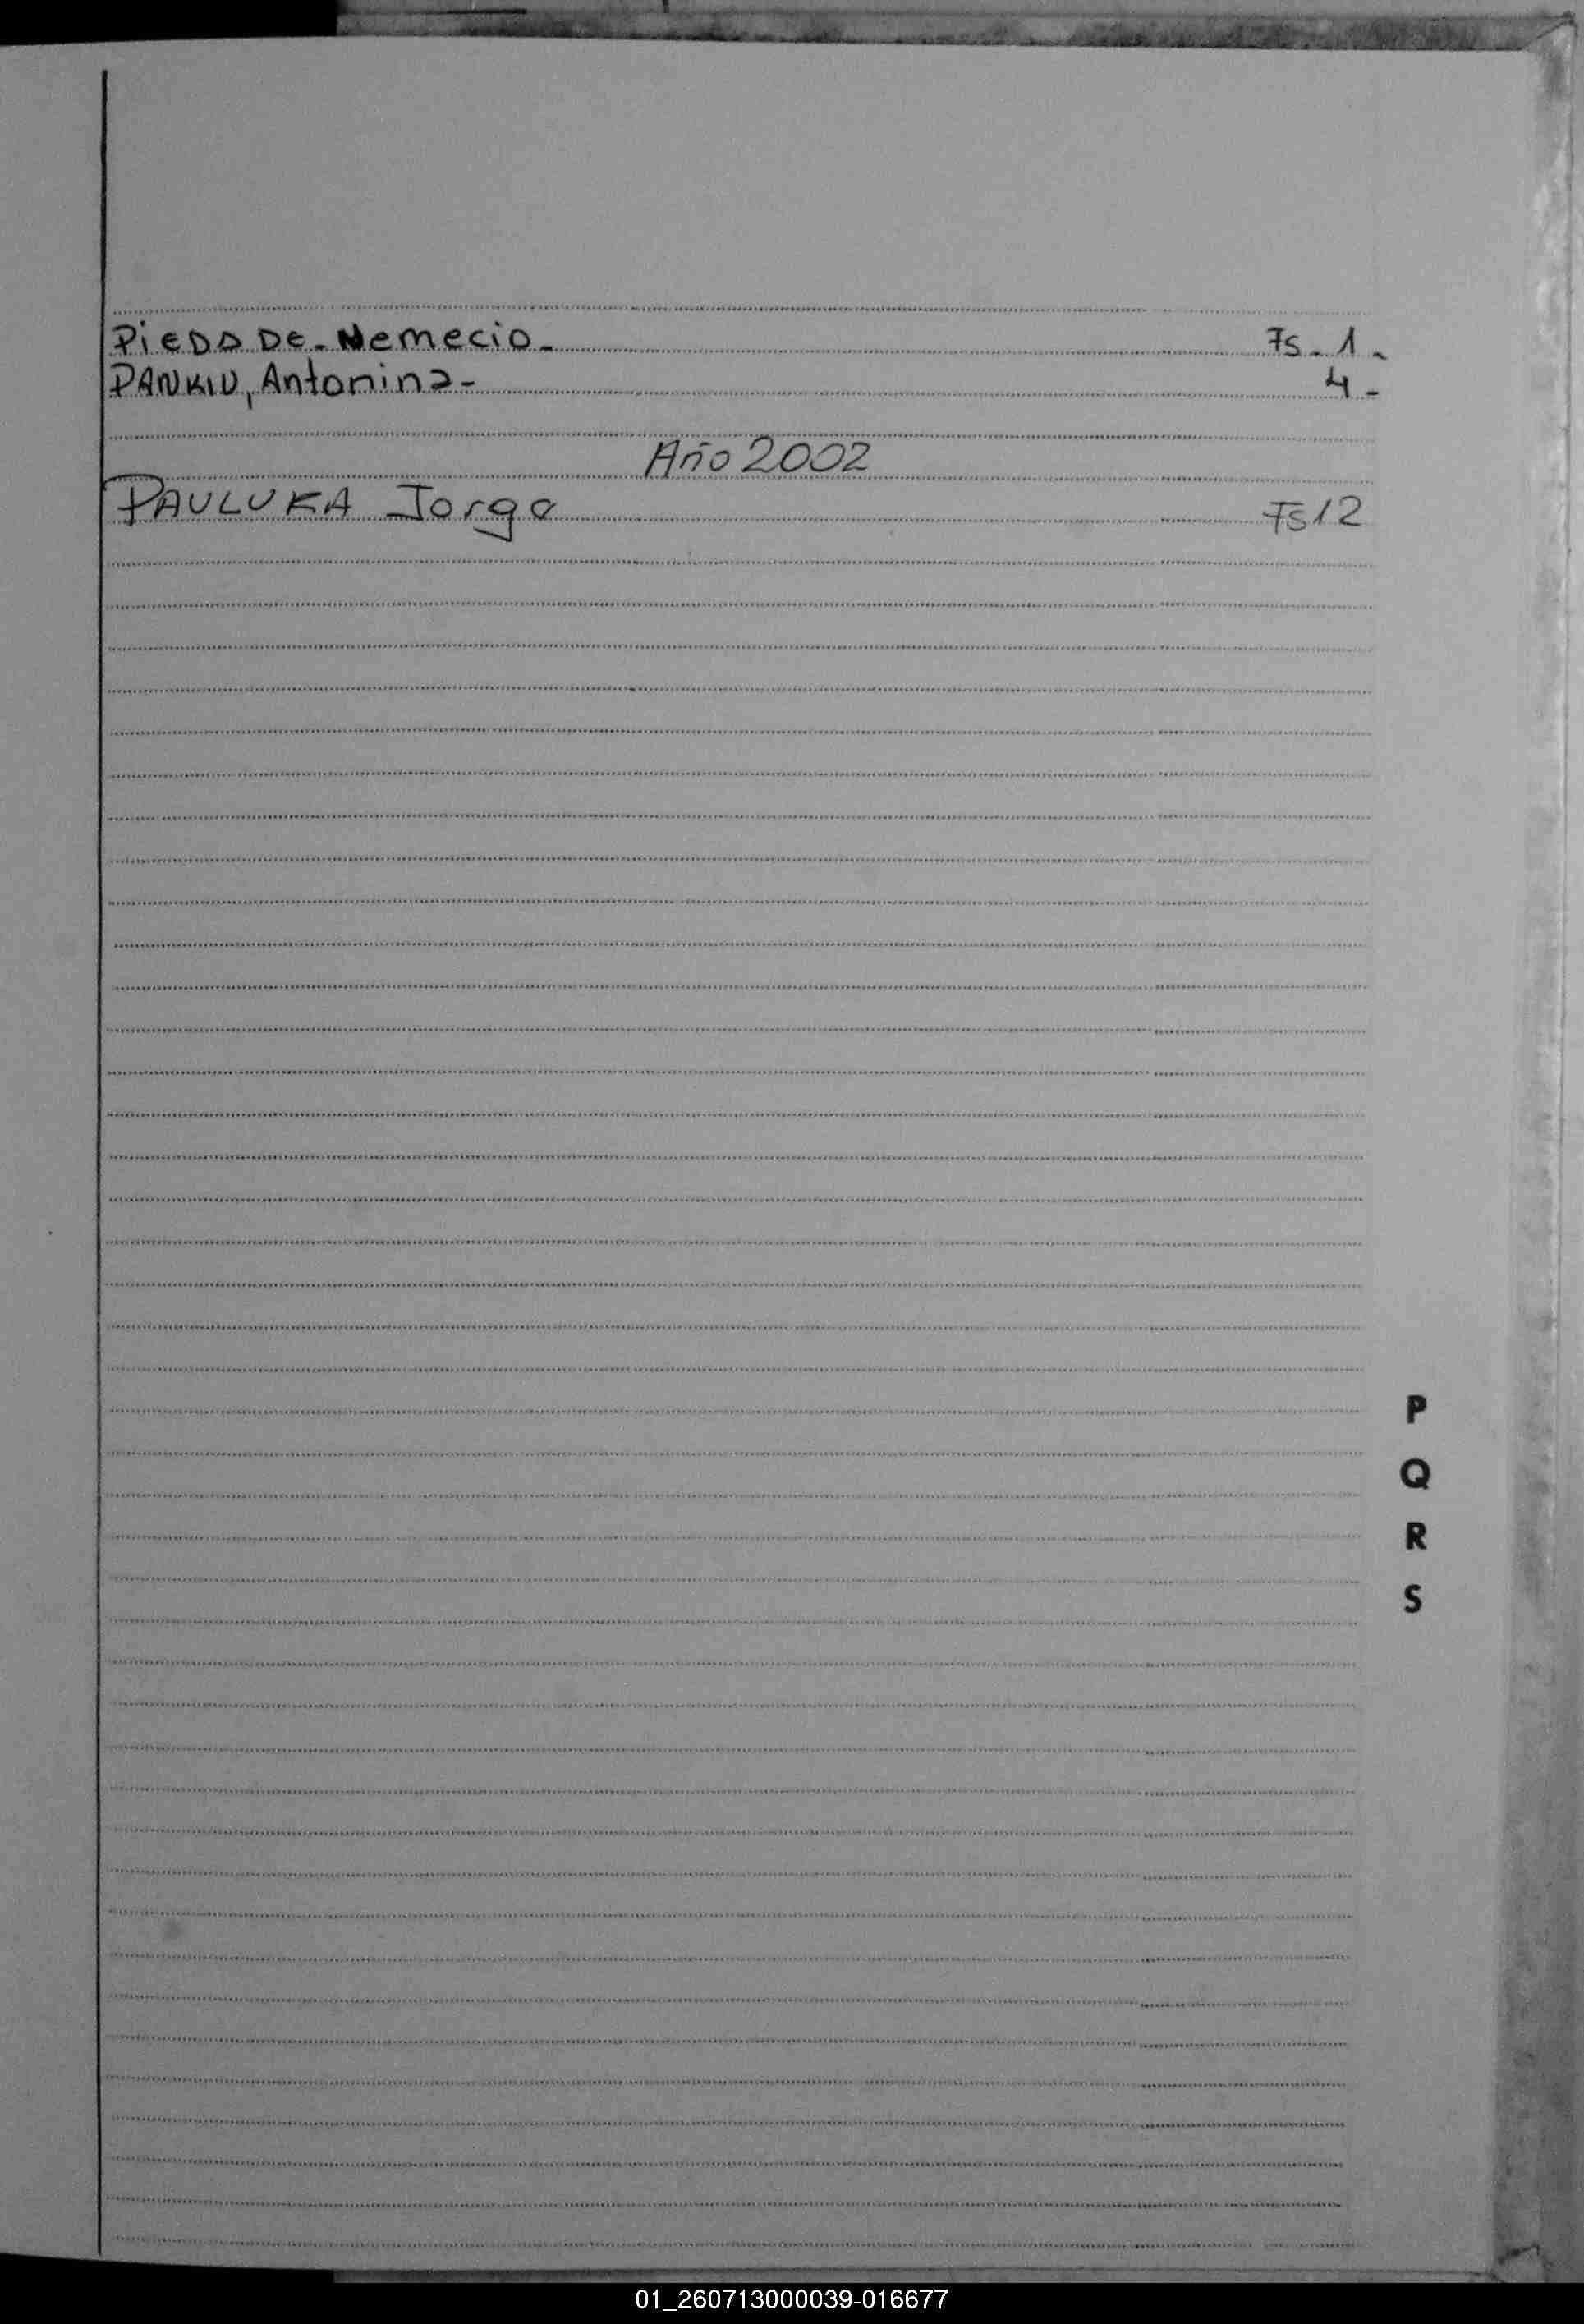 PiEDD DE. Nemecio. Fs. 1.
PANKIU, Antonina- 4-
Año 2002
PAULUKA Jorge Fs 12
P
Q
R
S
01_260713000039-016677